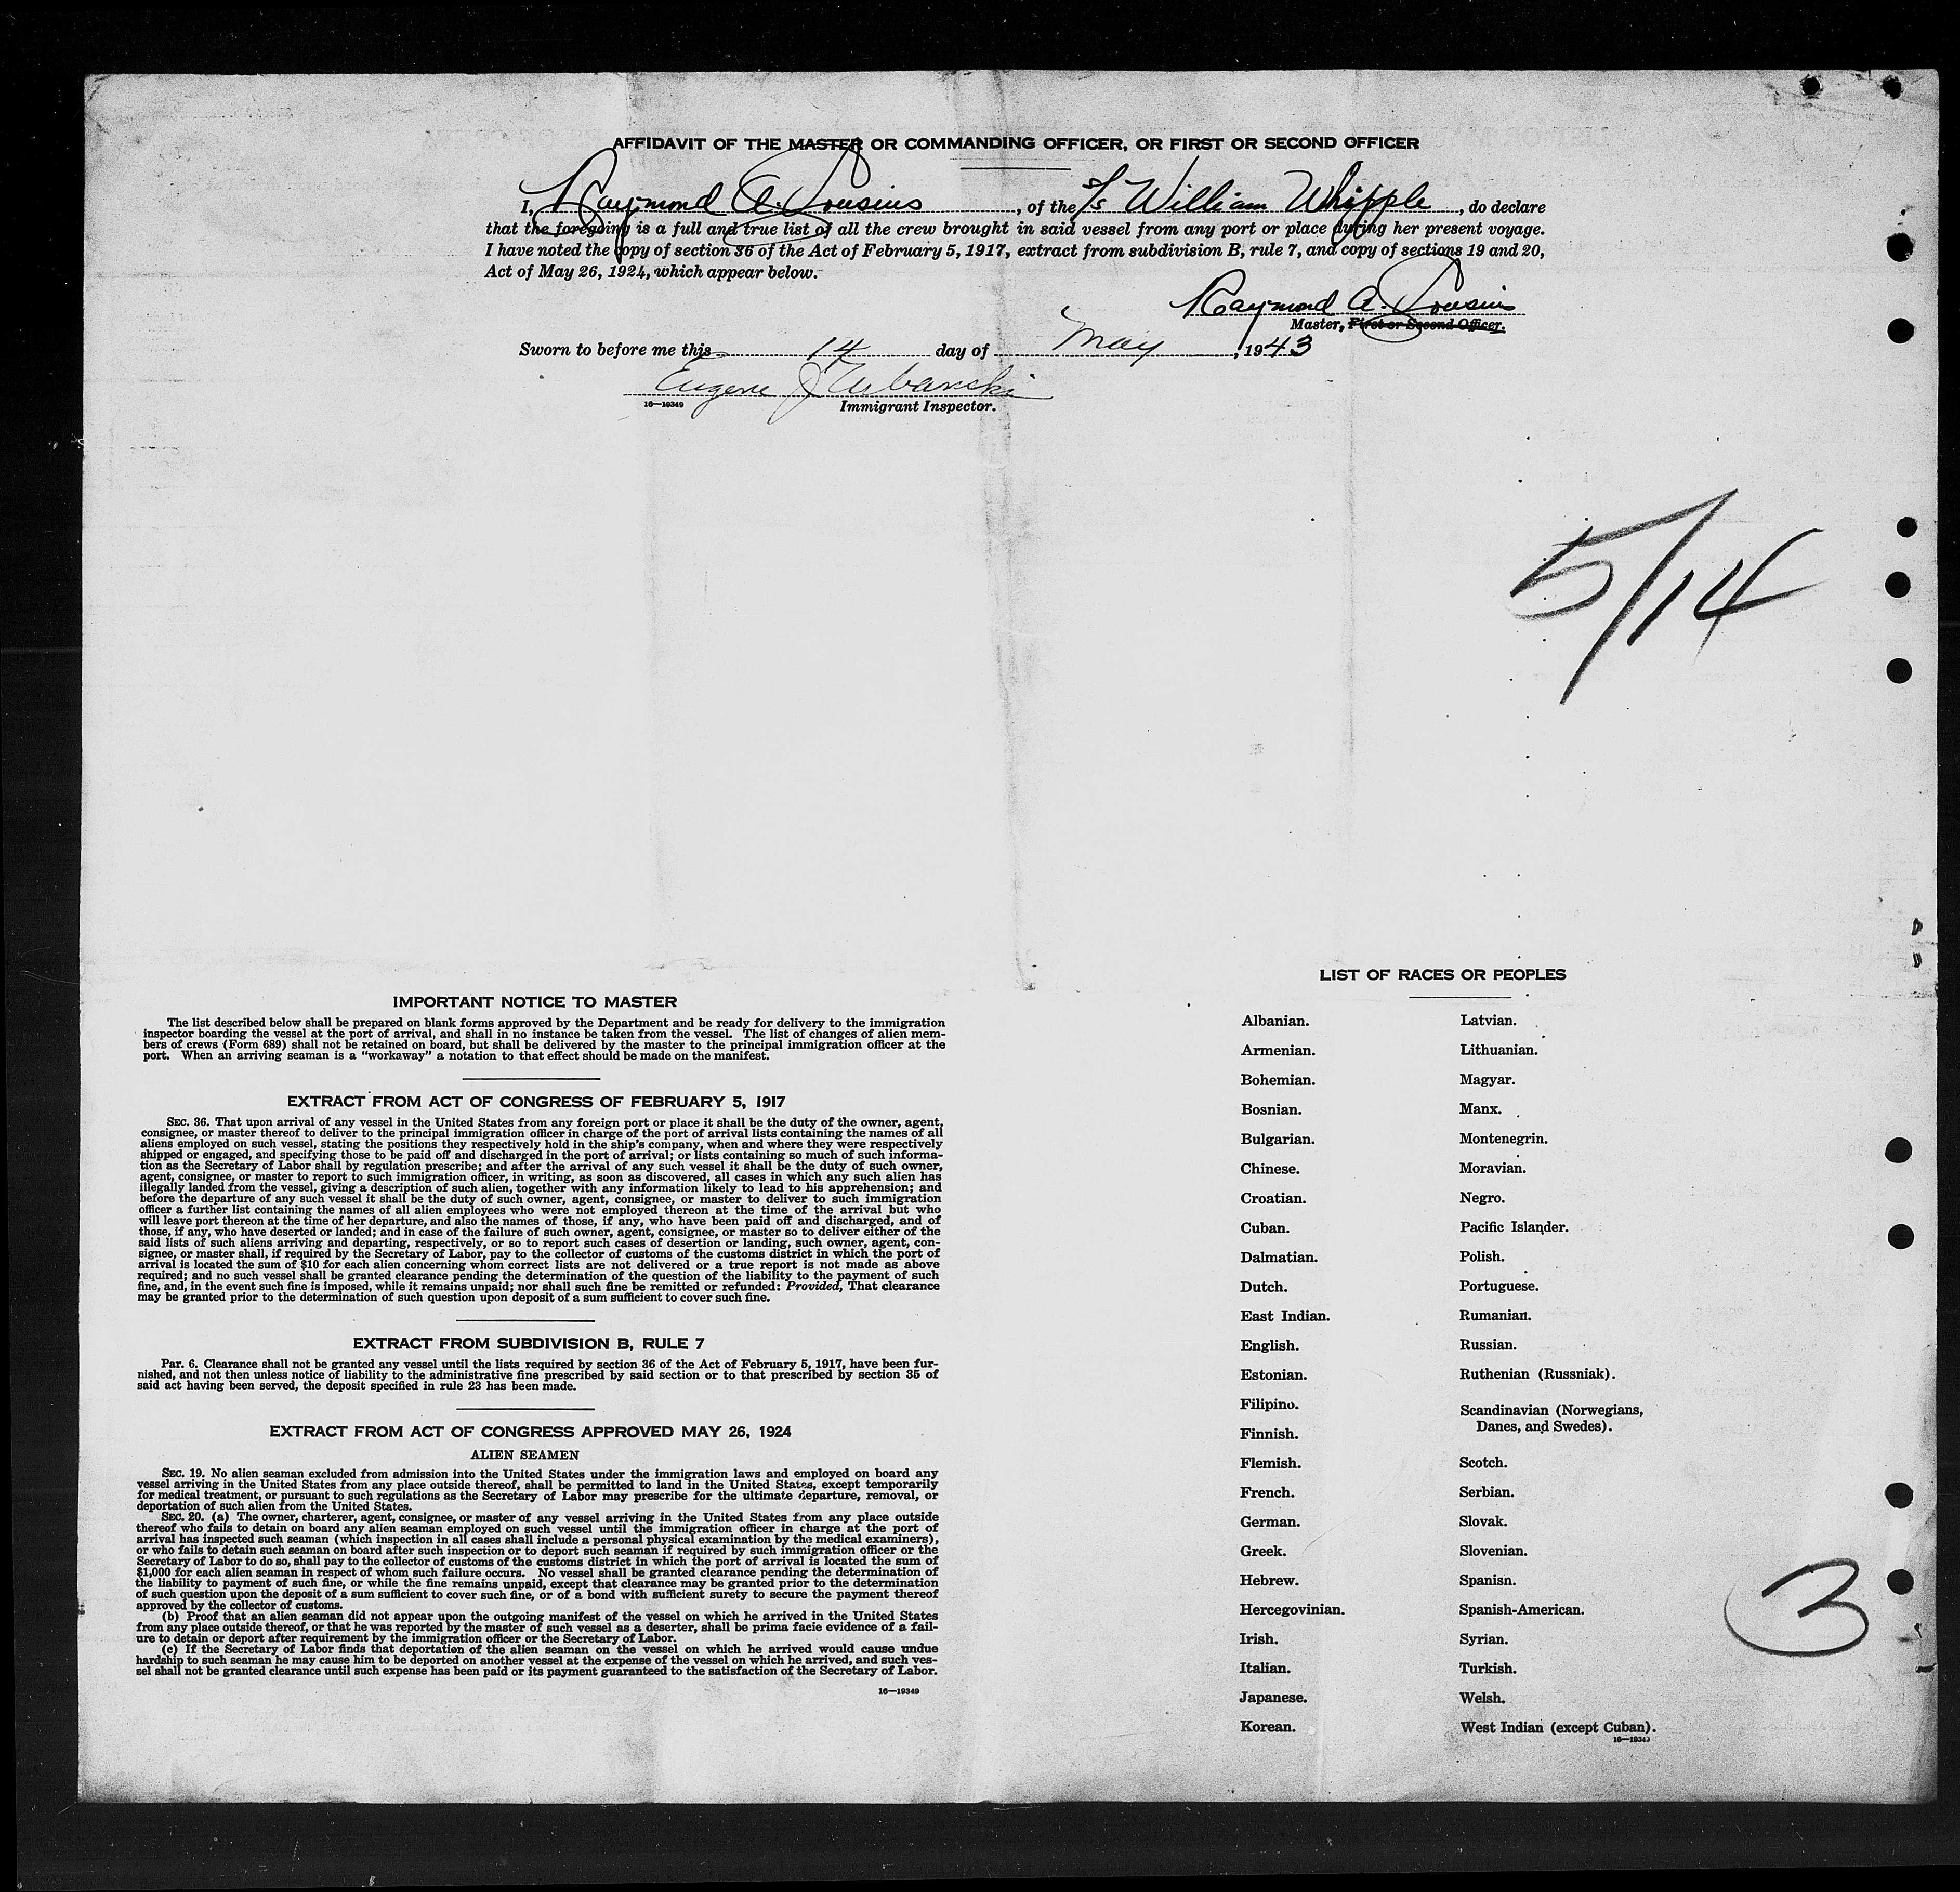 AFFIDAVIT OF THE MASTER OR COMMANDING OFFICER, OR FIRST OR SECOND OFFICER
I, Raymond A. Cousins, of the S/S William Whipple, do declare
that the foregoing is a full and true list of all the crew brought in said vessel from any port or place during her present voyage.
I have noted the copy of section 36 of the Act of February 5, 1917, extract from subdivision B, rule 7, and copy of sections 19 and 20,
Act of May 26, 1924, which appear below.
Raymond A. Cousins
Master, First or Second Officer.
Sworn to before me this 14 day of May, 1943
Eugene J Urbanski
16—19349 Immigrant Inspector.
5/14
IMPORTANT NOTICE TO MASTER
The list described below shall be prepared on blank forms approved by the Department and be ready for delivery to the immigration
inspector boarding the vessel at the port of arrival, and shall in no instance be taken from the vessel. The list of changes of alien mem-
bers of crews (Form 689) shall not be retained on board, but shall be delivered by the master to the principal immigration officer at the
port. When an arriving seaman is a "workaway" a notation to that effect should be made on the manifest.
EXTRACT FROM ACT OF CONGRESS OF FEBRUARY 5, 1917
SEC. 36. That upon arrival of any vessel in the United States from any foreign port or place it shall be the duty of the owner, agent,
consignee, or master thereof to deliver to the principal immigration officer in charge of the port of arrival lists containing the names of all
aliens employed on such vessel, stating the positions they respectively hold in the ship's company, when and where they were respectively
shipped or engaged, and specifying those to be paid off and discharged in the port of arrival; or lists containing so much of such informa-
tion as the Secretary of Labor shall by regulation prescribe; and after the arrival of any such vessel it shall be the duty of such owner,
agent, consignee, or master to report to such immigration officer, in writing, as soon as discovered, all cases in which any such alien has
illegally landed from the vessel, giving a description of such alien, together with any information likely to lead to his apprehension; and
before the departure of any such vessel it shall be the duty of such owner, agent, consignee, or master to deliver to such immigration
officer a further list containing the names of all alien employees who were not employed thereon at the time of the arrival but who
will leave port thereon at the time of her departure, and also the names of those, if any, who have been paid off and discharged, and of
those, if any, who have deserted or landed; and in case of the failure of such owner, agent, consignee, or master so to deliver either of the
said lists of such aliens arriving and departing, respectively, or so to report such cases of desertion or landing, such owner, agent, con-
signee, or master shall, if required by the Secretary of Labor, pay to the collector of customs of the customs district in which the port of
arrival is located the sum of $10 for each alien concerning whom correct lists are not delivered or a true report is not made as above
required; and no such vessel shall be granted clearance pending the determination of the question of the liability to the payment of such
fine, and, in the event such fine is imposed, while it remains unpaid; nor shall such fine be remitted or refunded: Provided, That clearance
may be granted prior to the determination of such question upon deposit of a sum sufficient to cover such fine.
EXTRACT FROM SUBDIVISION B, RULE 7
Par. 6. Clearance shall not be granted any vessel until the lists required by section 36 of the Act of February 5, 1917, have been fur-
nished, and not then unless notice of liability to the administrative fine prescribed by said section or to that prescribed by section 35 of
said act having been served, the deposit specified in rule 23 has been made.
EXTRACT FROM ACT OF CONGRESS APPROVED MAY 26, 1924
ALIEN SEAMEN
SEC. 19. No alien seaman excluded from admission into the United States under the immigration laws and employed on board any
vessel arriving in the United States from any place outside thereof, shall be permitted to land in the United States, except temporarily
for medical treatment, or pursuant to such regulations as the Secretary of Labor may prescribe for the ultimate departure, removal, or
deportation of such alien from the United States.
SEC. 20. (a) The owner, charterer, agent, consignee, or master of any vessel arriving in the United States from any place outside
thereof who fails to detain on board any alien seaman employed on such vessel until the immigration officer in charge at the port of
arrival has inspected such seaman (which inspection in all cases shall include a personal physical examination by the medical examiners),
or who fails to detain such seaman on board after such inspection or to deport such seaman if required by such immigration officer or the
Secretary of Labor to do so, shall pay to the collector of customs of the customs district in which the port of arrival is located the sum of
$1,000 for each alien seaman in respect of whom such failure occurs. No vessel shall be granted clearance pending the determination of
the liability to payment of such fine, or while the fine remains unpaid, except that clearance may be granted prior to the determination
of such question upon the deposit of a sum sufficient to cover such fine, or of a bond with sufficient surety to secure the payment thereof
approved by the collector of customs.
(b) Proof that an alien seaman did not appear upon the outgoing manifest of the vessel on which he arrived in the United States
from any place outside thereof, or that he was reported by the master of such vessel as a deserter, shall be prima facie evidence of a fail-
ure to detain or deport after requirement by the immigration officer or the Secretary of Labor.
(c) If the Secretary of Labor finds that deportation of the alien seaman on the vessel on which he arrived would cause undue
hardship to such seaman he may cause him to be deported on another vessel at the expense of the vessel on which he arrived, and such ves-
sel shall not be granted clearance until such expense has been paid or its payment guaranteed to the satisfaction of the Secretary of Labor.
16—19349
LIST OF RACES OR PEOPLES
Albanian.
Armenian.
Bohemian.
Bosnian.
Bulgarian.
Chinese.
Croatian.
Cuban.
Dalmatian.
Dutch.
East Indian.
English.
Estonian.
Filipino.
Finnish.
Flemish.
French.
German.
Greek.
Hebrew.
Hercegovinian.
Irish.
Italian.
Japanese.
Korean.
Latvian.
Lithuanian.
Magyar.
Manx.
Montenegrin.
Moravian.
Negro.
Pacific Islander.
Polish.
Portuguese.
Rumanian.
Russian.
Ruthenian (Russniak).
Scandinavian (Norwegians,
Danes, and Swedes).
Scotch.
Serbian.
Slovak.
Slovenian.
Spanish.
Spanish-American.
Syrian.
Turkish.
Welsh.
West Indian (except Cuban).
16—19349
3